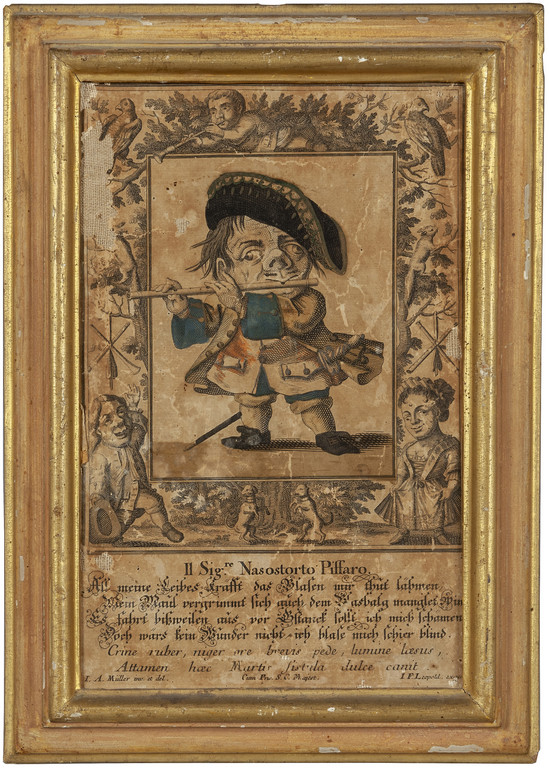 Il Sig.re Nasostorto Piffaro.
All meine Leibes Krafft das Blasen mir thut lahmen,
Mein Maul vergrummt sich auch dem Dasbalg manglet Win
Es fahrt bißweilen aus vor G'stanck solt ich mich schamen
Doch wars kein Wunder nicht ich blase mich schier blind.
Crine ruber, niger ore brevis pede, lumine læsus,
Attamen hæc Martis fistula dulce canit.
I. A. Müller inv. et del. Cum Pr. S. C. Majest. I F Leopold. excud.